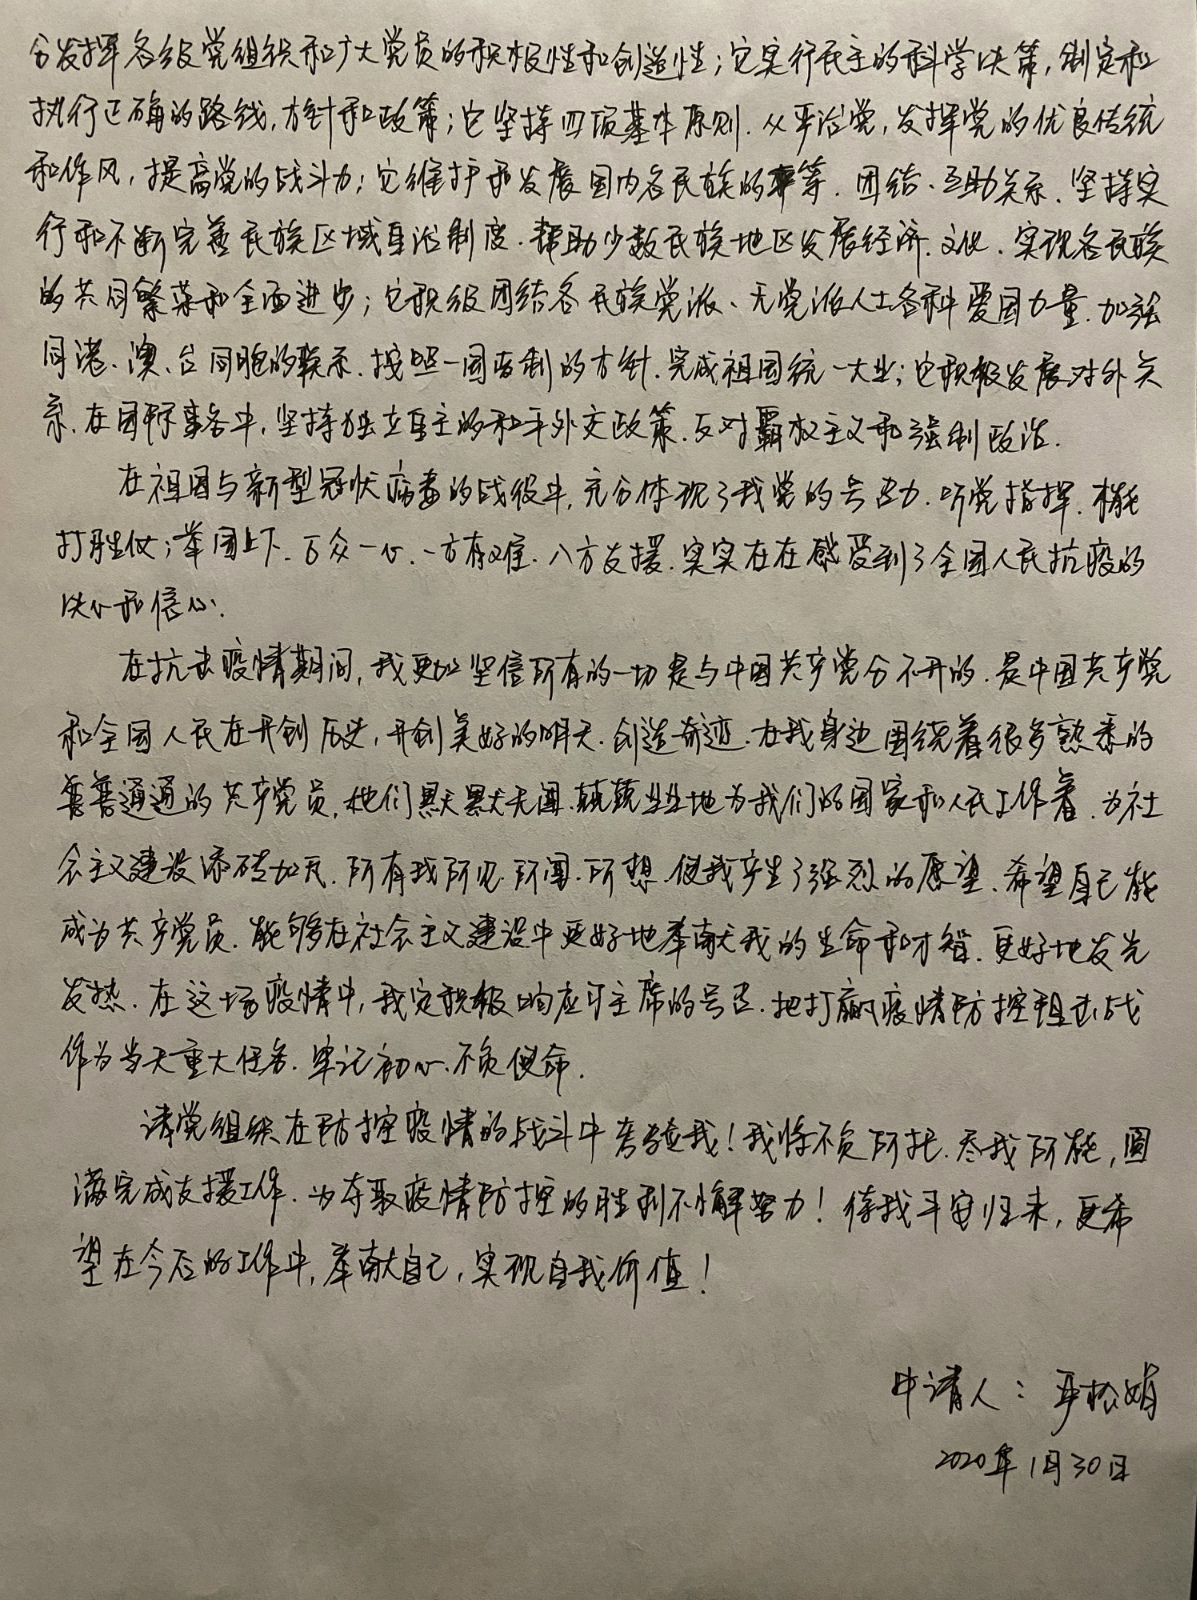 分发挥各级党组织和广大党员的积极性和创造性；它实行民主的科学决策，制定和
执行正确的路线，方针和政策；它坚持四项基本原则，从严治党，发挥党的优良传统
和作风，提高党的战斗力；它维护和发展国内各民族的平等、团结、互助关系，坚持实
行和不断完善民族区域自治制度，帮助少数民族地区发展经济、文化，实现各民族
的共同繁荣和全面进步；它积极团结各民族党派、无党派人士各种爱国力量，加强
同港、澳、台同胞的联系，按照一国两制的方针，完成祖国统一大业；它积极发展对外关
系，在国际事务中，坚持独立自主的和平外交政策，反对霸权主义和强制政治。
在祖国与新型冠状病毒的战役中，充分体现了我党的号召力，听党指挥，才能
打胜仗；举国上下、万众一心、一方有难、八方支援，实实在在感受到了全国人民抗疫的
决心和信心。
在抗击疫情期间，我更加坚信所有的一切是与中国共产党分不开的，是中国共产党
和全国人民在开创历史，开创美好的明天，创造奇迹，在我身边围绕着很多熟悉的
普普通通的共产党员，他们默默无闻、兢兢业业地为我们的国家和人民工作着，为社
会主义建设添砖加瓦，所有我所见、所闻、所想，使我产生了强烈的愿望，希望自己能
成为共产党员，能够在社会主义建设中更好地奉献我的生命和才智，更好地发光
发热，在这场疫情中，我定积极响应习主席的号召，把打赢疫情防控阻击战
作为当天重大任务，牢记初心、不负使命。
请党组织在防控疫情的战斗中考验我！我将不负所托，尽我所能，圆
满完成支援工作，为夺取疫情防控的胜利不懈努力！待我平安归来，更希
望在今后的工作中，奉献自己，实现自我价值！
申请人：严松娟
2020年1月30日